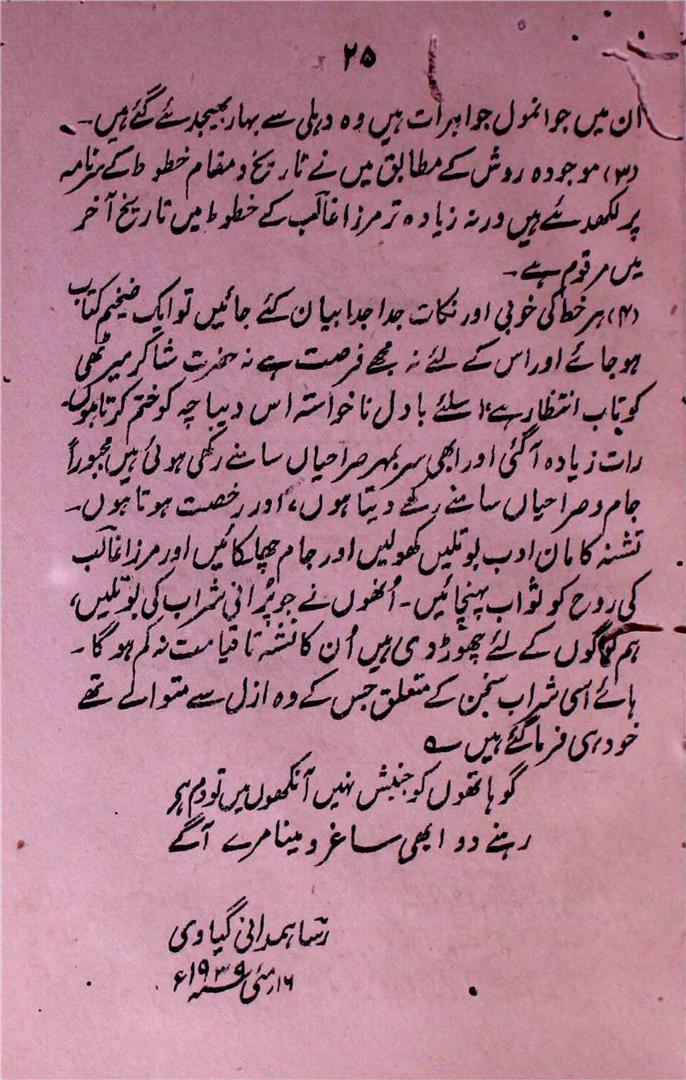 ۲۵
ان میں جو انمول جواہرات ہیں وہ دہلی سے بہار بھیجدئے گئے ہیں۔
(۳) موجودہ روش کے مطابق میں نے تاریخ و مقام خطوط کے سرنامہ
پر لکھدئے ہیں ورنہ زیادہ تر مرزا غالب کے خطوط میں تاریخ آخر
میں مرقوم ہے۔
(۴) ہر خط کی خوبی اور نکات جدا جدا بیان کئے جائیں تو ایک ضخیم کتاب
ہو جائے اور اس کے لئے نہ مجھے فرصت ہے نہ حضرت شاکر میرٹھی
کو تاب انتظار ہے، اسلئے بادل ناخواستہ اس دیباچہ کو ختم کرتا ہوں۔
رات زیادہ آگئی اور ابھی سربمہر صراحیاں سامنے رکھی ہوئی ہیں مجبوراً
جام و صراحیاں سامنے رکھے دیتا ہوں، اور رخصت ہوتا ہوں۔
تشنہ کامان ادب بوتلیں کھولیں اور جام چھلکائیں اور مرزا غالب
کی روح کو ثواب پہنچائیں۔ اُنھوں نے جو پُرانی شراب کی بوتلیں،
ہم لوگوں کے لئے چھوڑ دی ہیں اُن کا نشہ تا قیامت نہ کم ہوگا۔
ہائے اسی شراب سخن کے متعلق جس کے وہ ازل سے متوالے تھے
خود ہی فرما گئے ہیں ؎
گو ہاتھوں کو جنبش نہیں آنکھوں میں تو دم ہے
رہنے دو ابھی ساغر و مینا مرے آگے
رسا ہمدانی گیاوی
۱۶ مئی سنہ ۱۹۳۹ء